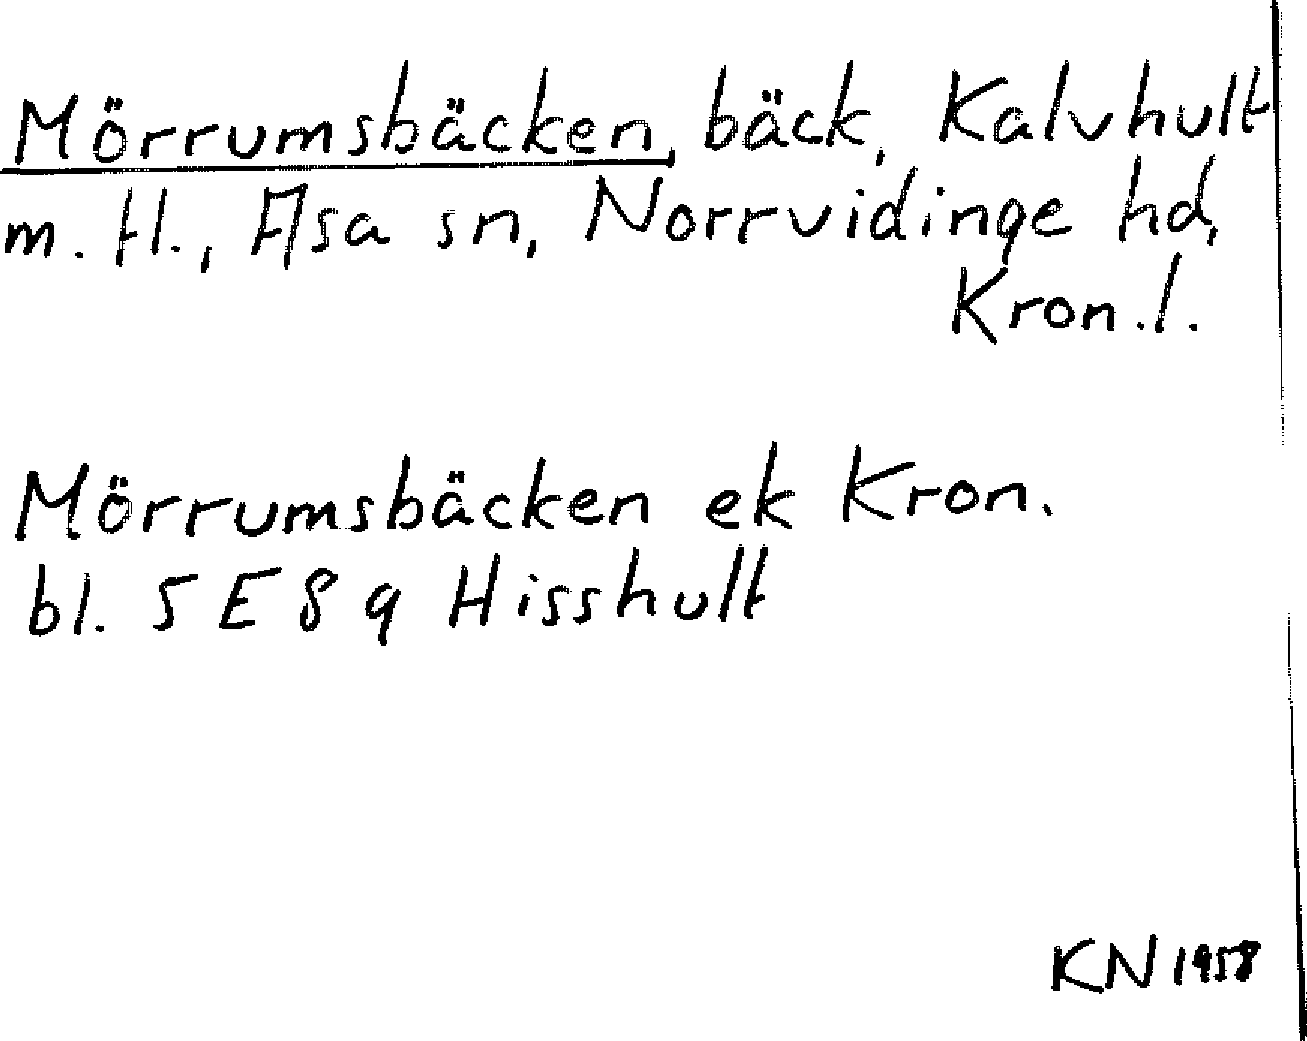 Mörrumsbäcken, bäck, Kalvhult
m. fl., Asa sn, Norrvidinge hd,
Kron.l.
Mörrumsbäcken ek Kron.
bl. 5 E 8 q Hisshult
KN 1958